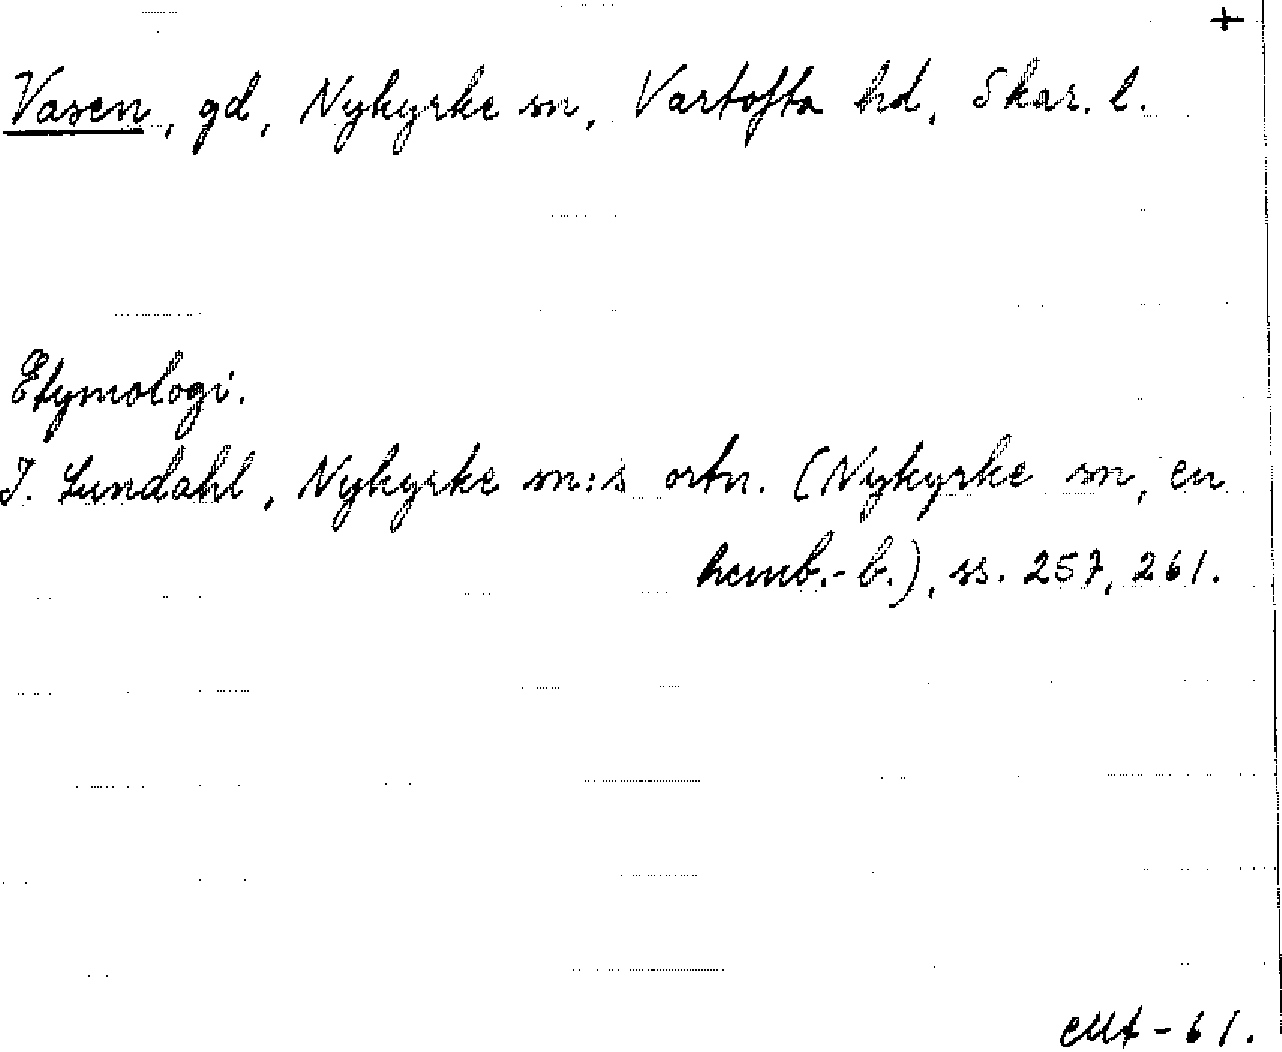 +
Vasen, gd, Nykyrke sn, Vartofta hd, Skar. l.
Etymologi.
I. Lundahl, Nykyrke sn:s ortn. (Nykyrke sn, en
hemb.-b.), ss. 257, 261.
-61.